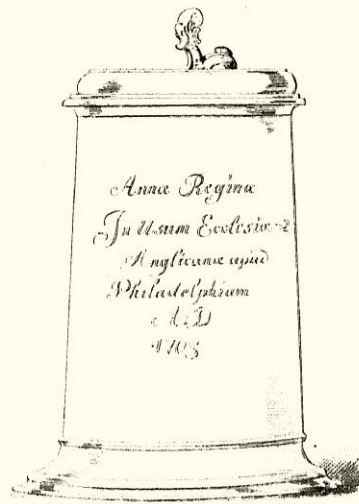 Annæ Reginæ
In Usum Ecclesiæ
Anglicanæ apud
Philadelphiam
A:D
1708